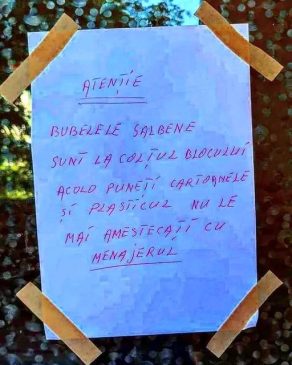 ATENȚIE
BUBELELE SALBENE
SUNT LA COLȚUL BLOCULUI
ACOLO PUNEȚI CARTOANELE
ȘI PLASTICUL NU LE
MAI AMESTECAȚI CU
MENAJERUL